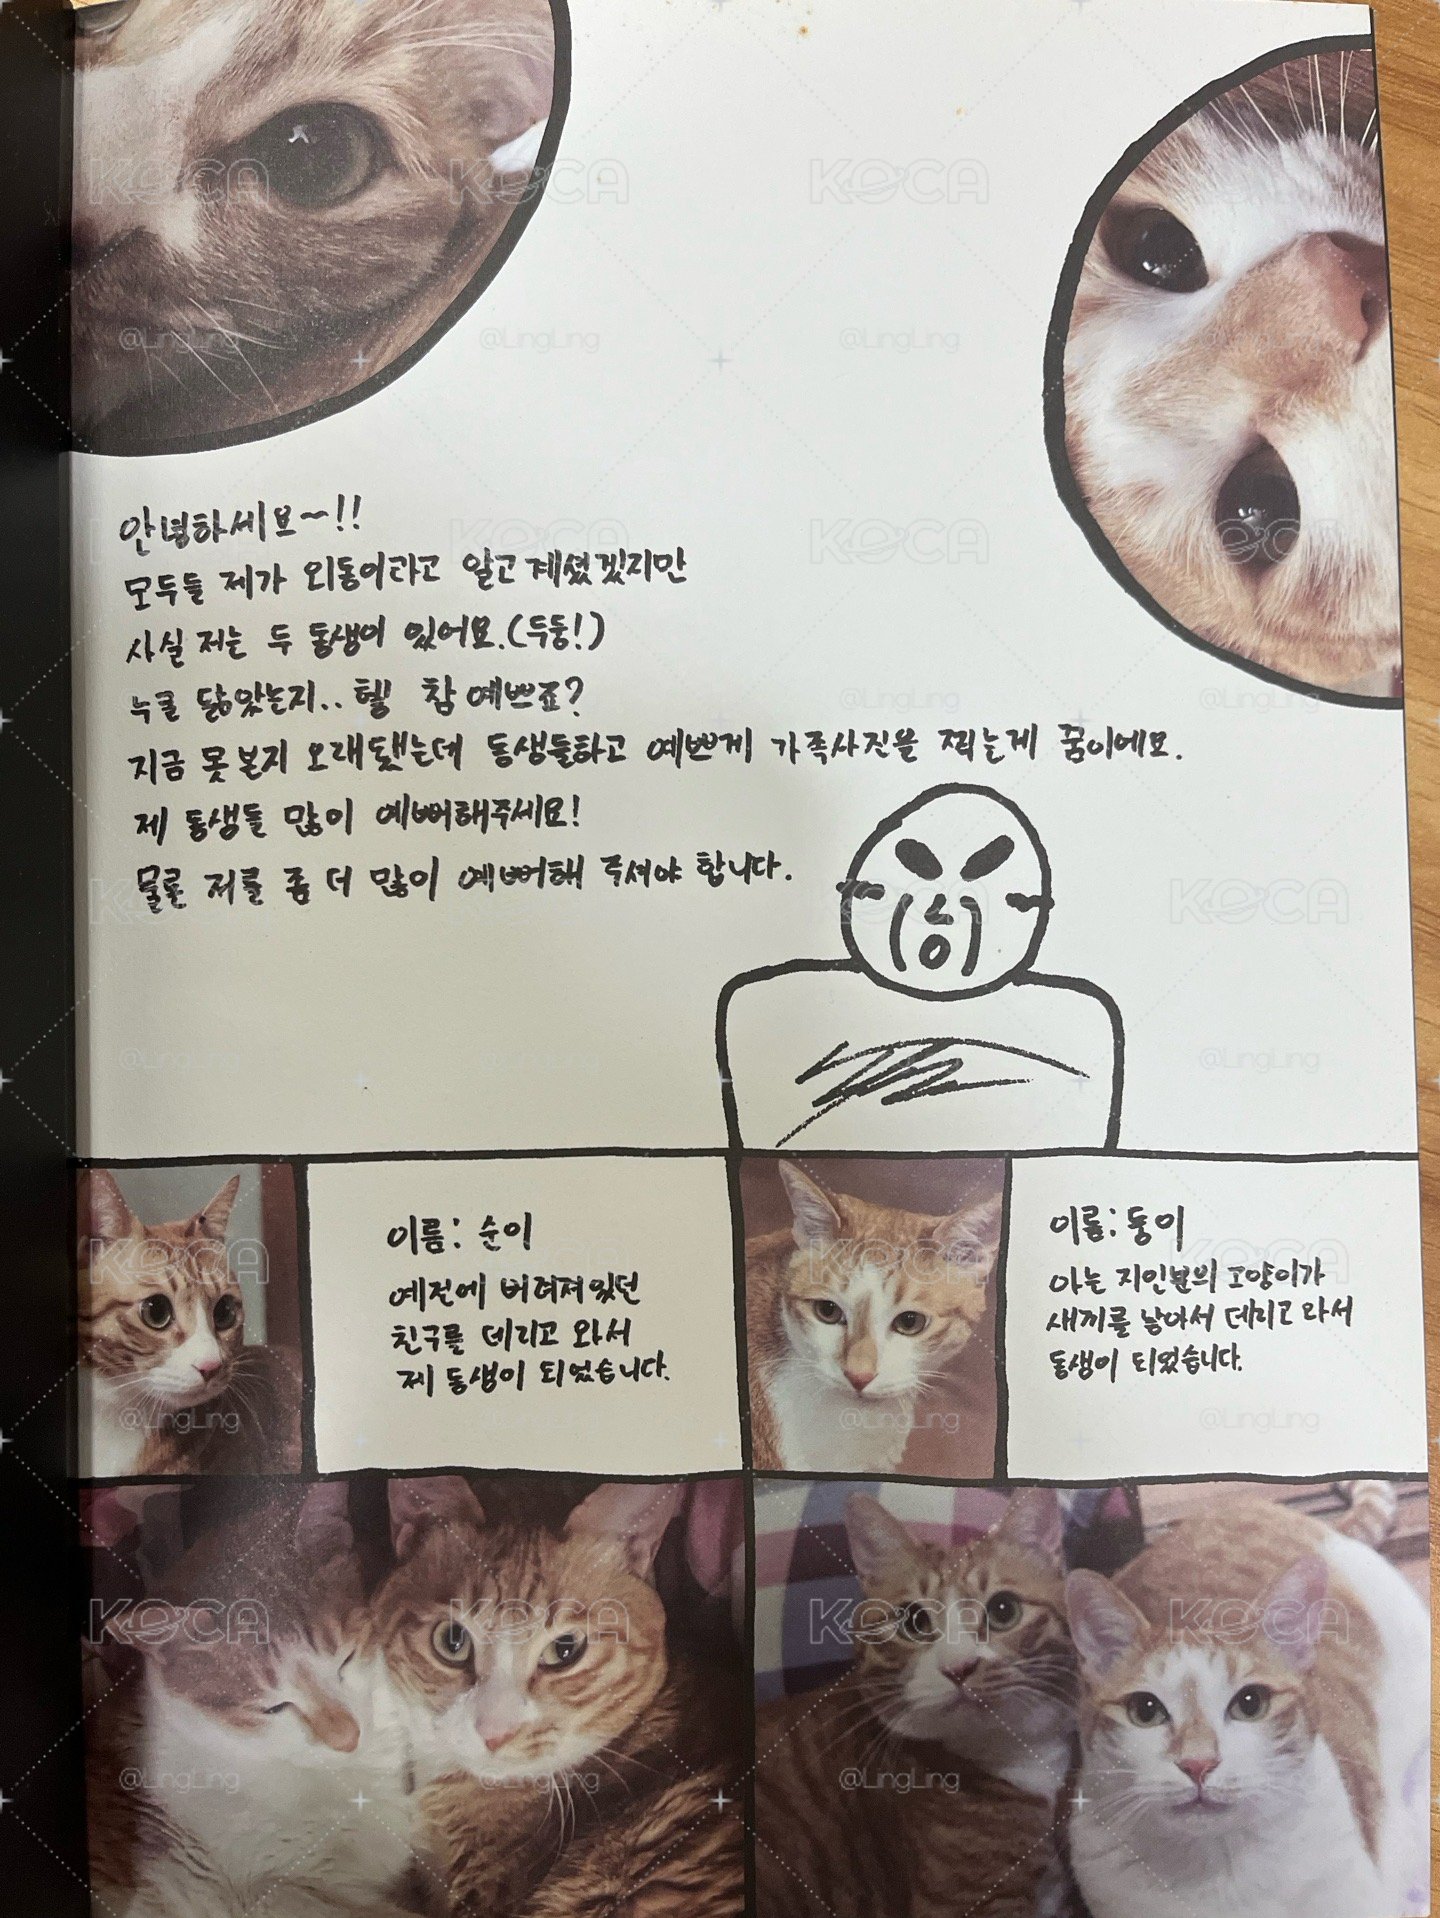 안녕하세요~!!
모두들 제가 외동이라고 알고 계셨겠지만
사실 저는 두 동생이 있어요.(두둥!)
누굴 닮았는지.. 헿 참 예쁘죠?
지금 못 본지 오래됐는데 동생들하고 예쁘게 가족사진을 찍는게 꿈이에요.
제 동생들 많이 예뻐해주세요!
물론 저를 좀 더 많이 예뻐해 주셔야 합니다.
이름: 순이
예전에 버려져있던
친구를 데리고 와서
제 동생이 되었습니다.
이름: 둥이
아는 지인분의 고양이가
새끼를 낳아서 데리고 와서
동생이 되었습니다.
KOCA
@LingLing